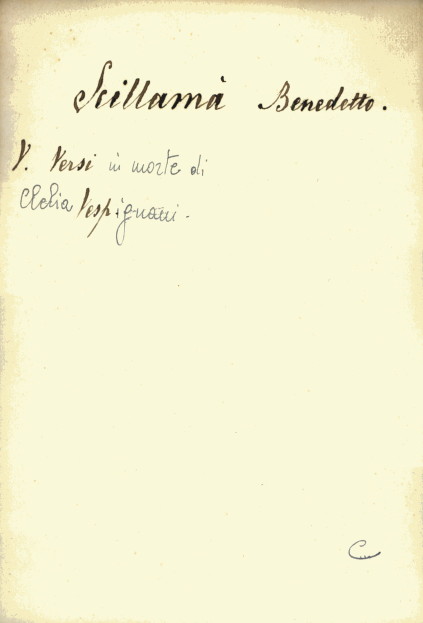 Scillamà Benedetto.
V. Versi in morte di
Clelia Vespignani.